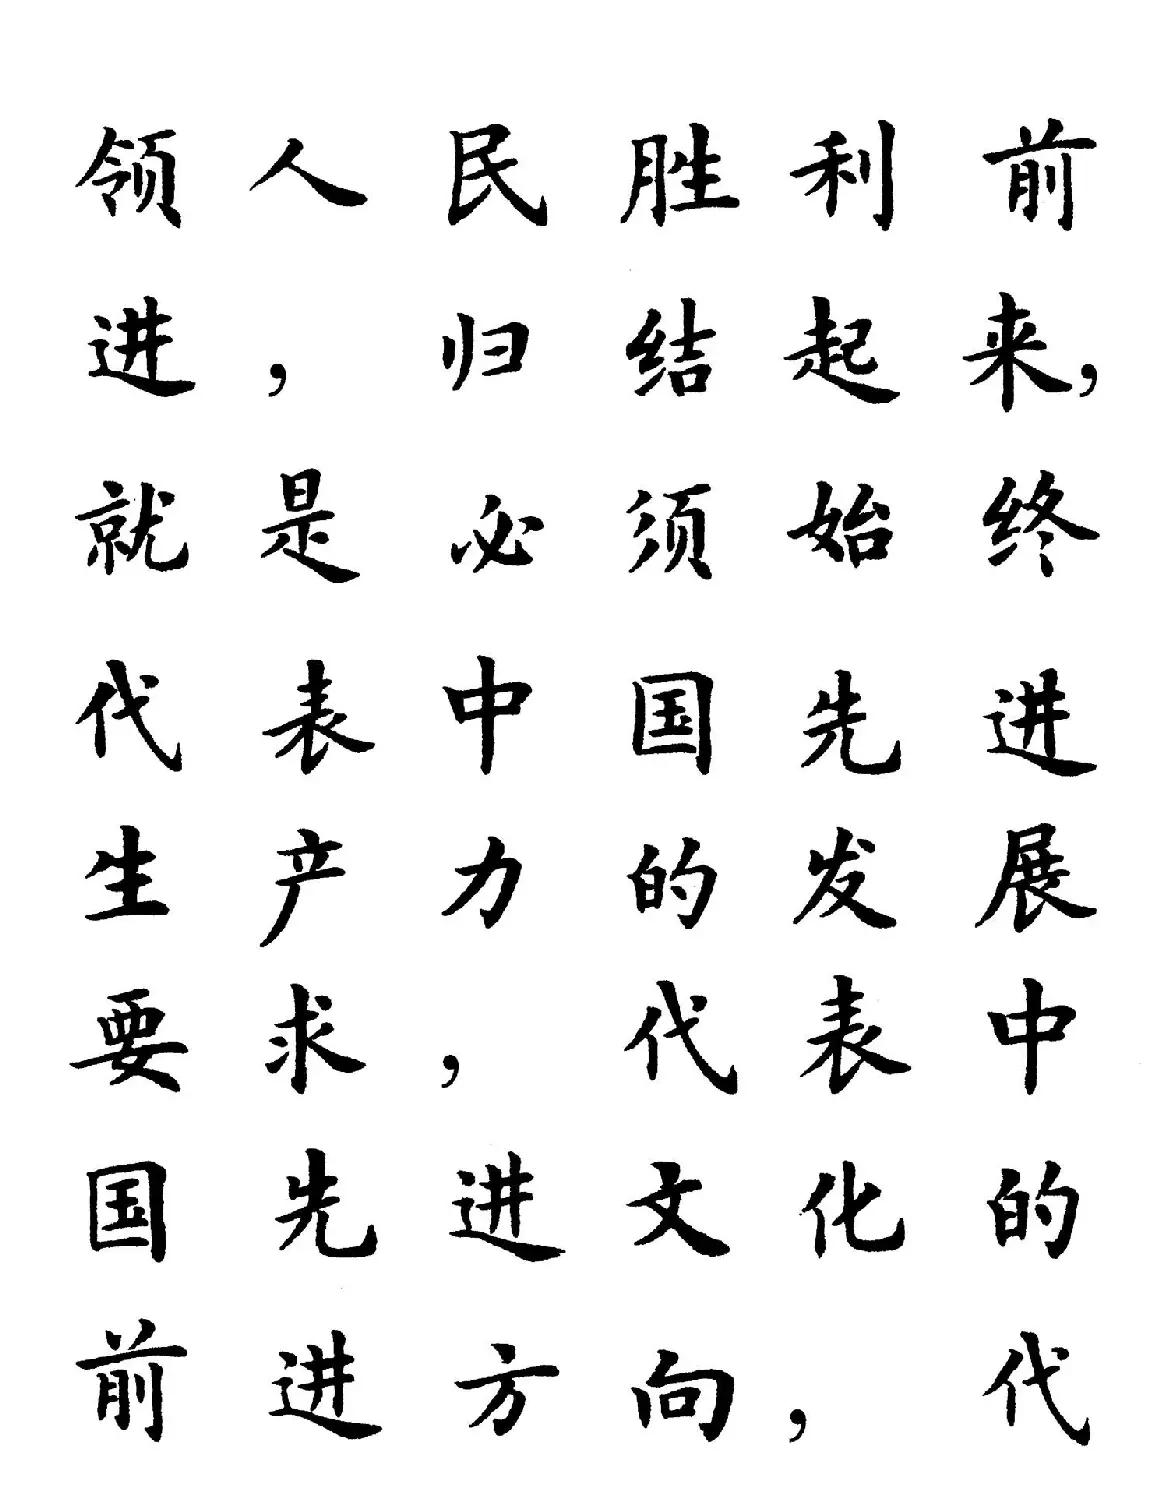 领人民胜利前
进，归结起来，
就是必须始终
代表中国先进
生产力的发展
要求，代表中
国先进文化的
前进方向，代